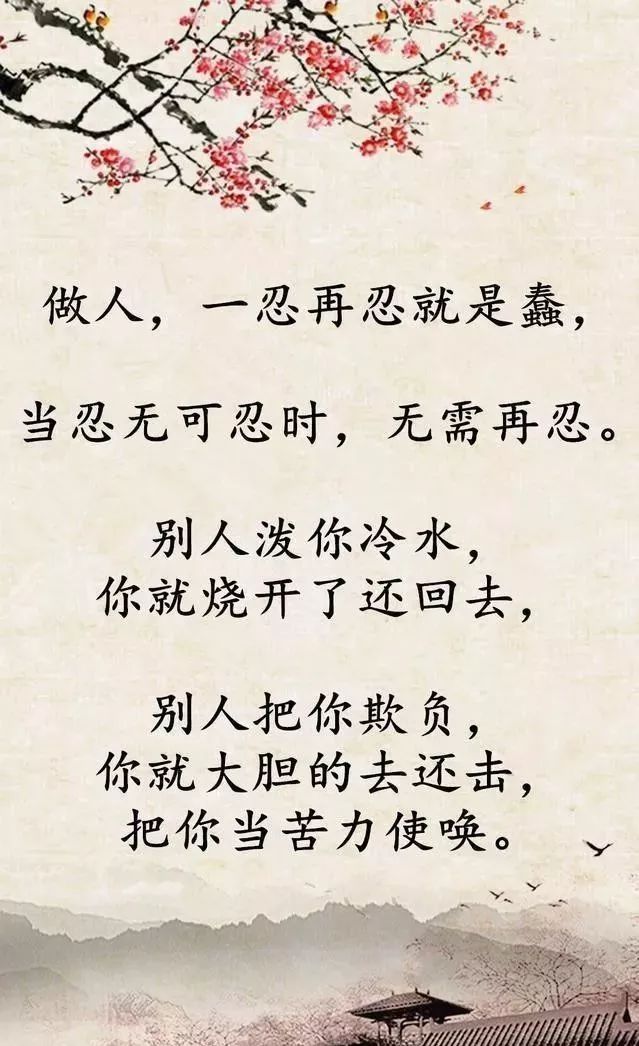 做人，一忍再忍就是蠢，
当忍无可忍时，无需再忍。
别人泼你冷水，
你就烧开了还回去，
别人把你欺负，
你就大胆的去还击，
把你当苦力使唤。